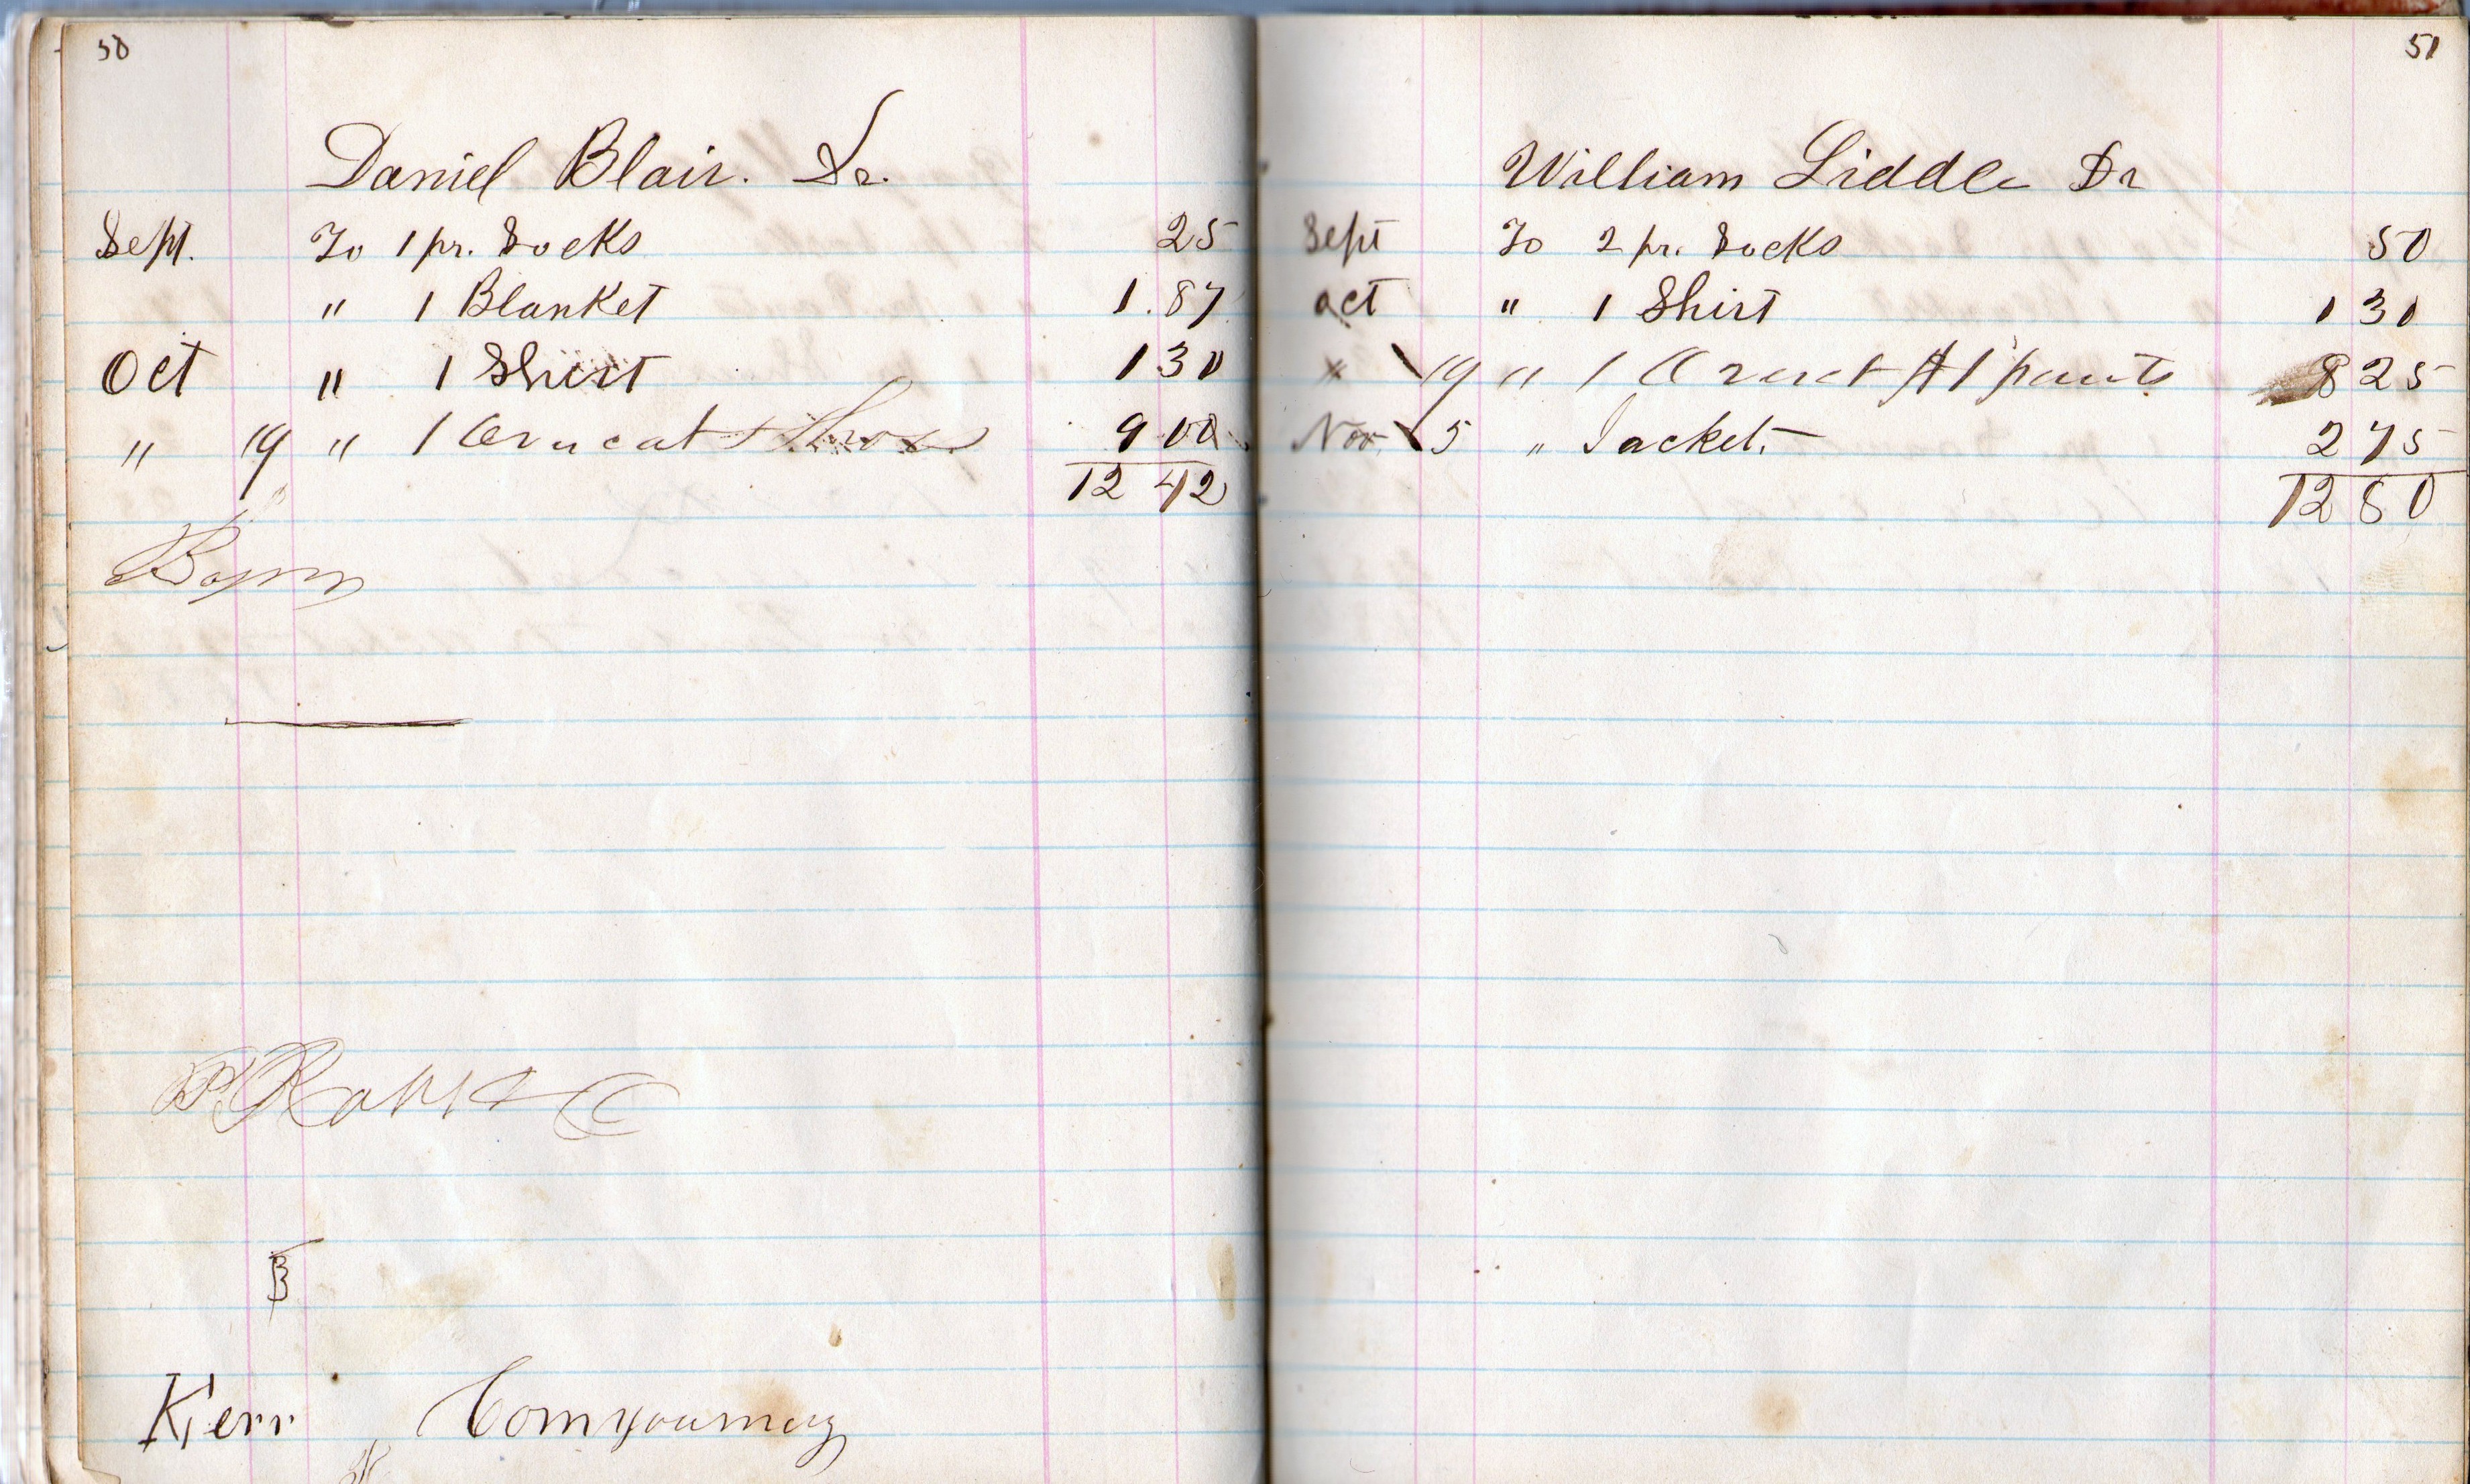 50
Daniel Blair. Dr.
Sept. To 1 pr. Socks 25
" 1 Blanket 1.87
Oct " 1 Shirt 1 30
" 19 " 1 Overcoat + Shoes 9 00
12 42
Kerr
51
William Liddle Dr
Sept To 2 pr. Socks 50
Oct " 1 Shirt 1 30
" 19 " 1 pants 8 25
Nov. 5 " Jacket. 2 75
12 80